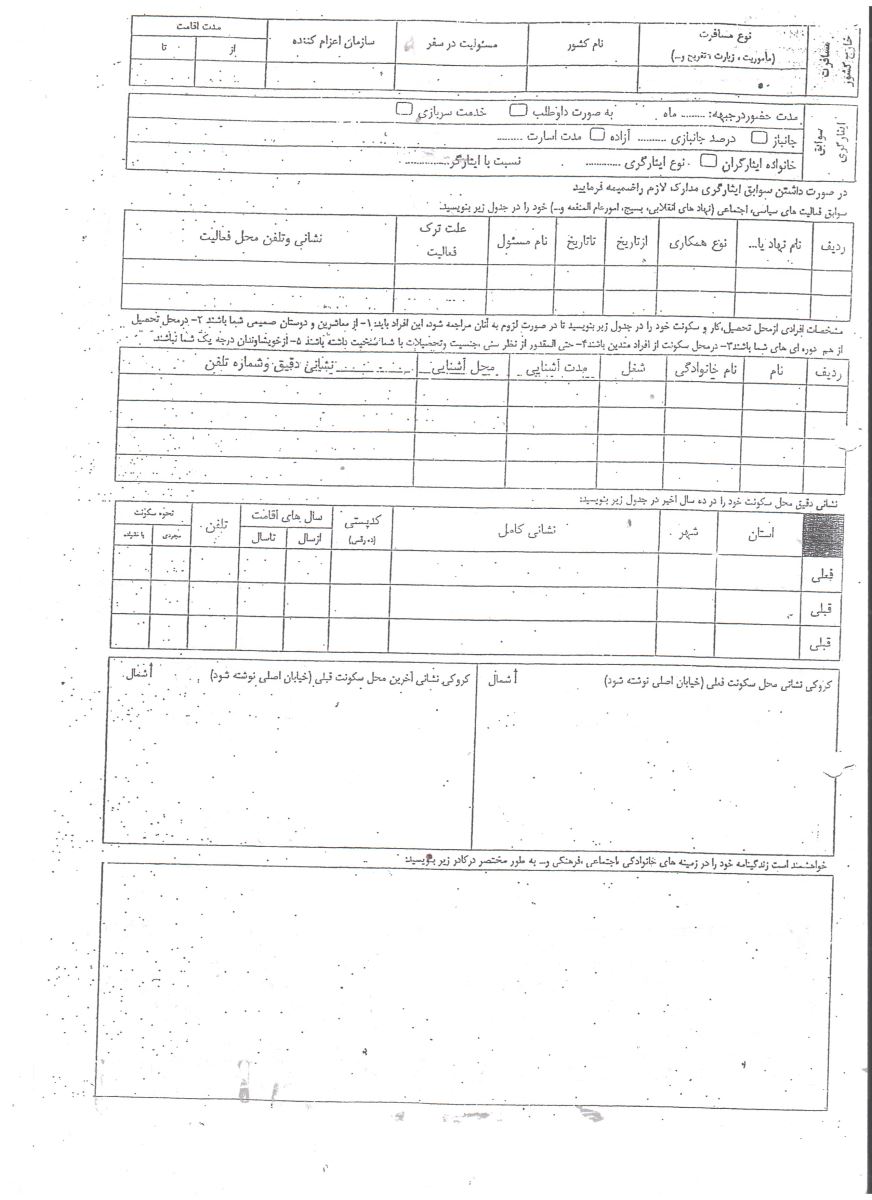 مسافرت
خارج کشور
نوع مسافرت
(مأموریت ، زیارت ، تفریح و...)
نام کشور
مسئولیت در سفر
سازمان اعزام کننده
مدت اقامت
از
تا
سوابق
ایثارگری
مدت حضوردرجبهه: ........ ماه به صورت داوطلب خدمت سربازی
جانباز درصد جانبازی .......... آزاده مدت اسارت .........
خانواده ایثارگران نوع ایثارگری ............ نسبت با ایثارگر...............
در صورت داشتن سوابق ایثارگری مدارک لازم راضمیمه فرمایید
سوابق فعالیت های سیاسی، اجتماعی (نهاد های انقلابی، بسیج، امورعام المنفعه و...) خود را در جدول زیر بنویسید:
ردیف
نام نهاد یا...
نوع همکاری
ازتاریخ
تاتاریخ
نام مسئول
علت ترک
فعالیت
نشانی وتلفن محل فعالیت
مشخصات افرادی ازمحل تحصیل،کار و سکونت خود را در جدول زیر بنویسید تا در صورت لزوم به آنان مراجعه شود، این افراد باید: ۱- از معاشرین و دوستان صمیمی شما باشند ۲- درمحل تحصیل
از هم دوره ای های شما باشند۳- درمحل سکونت از افراد متدین باشند۴- حتی المقدور از نظر سنی ،جنسیت وتحصیلات با شما سنخیت داشته باشند ۵- ازخویشاوندان درجه یک شما نباشند.
ردیف
نام
نام خانوادگی
شغل
مدت آشنایی
محل آشنایی
نشانی دقیق وشماره تلفن
نشانی دقیق محل سکونت خود را در ده سال اخیر در جدول زیر بنویسید:
استان
شهر
نشانی کامل
کدپستی
(ده رقمی)
سال های اقامت
ازسال
تاسال
تلفن
نحوه سکونت
مجردی
فعلی
قبلی
قبلی
کروکی نشانی محل سکونت فعلی (خیابان اصلی نوشته شود)
شمال
کروکی نشانی آخرین محل سکونت قبلی (خیابان اصلی نوشته شود)
شمال
خواهشمند است زندگینامه خود را در زمینه های خانوادگی ،اجتماعی ،فرهنگی و... به طور مختصر درکادر زیر بنویسید: